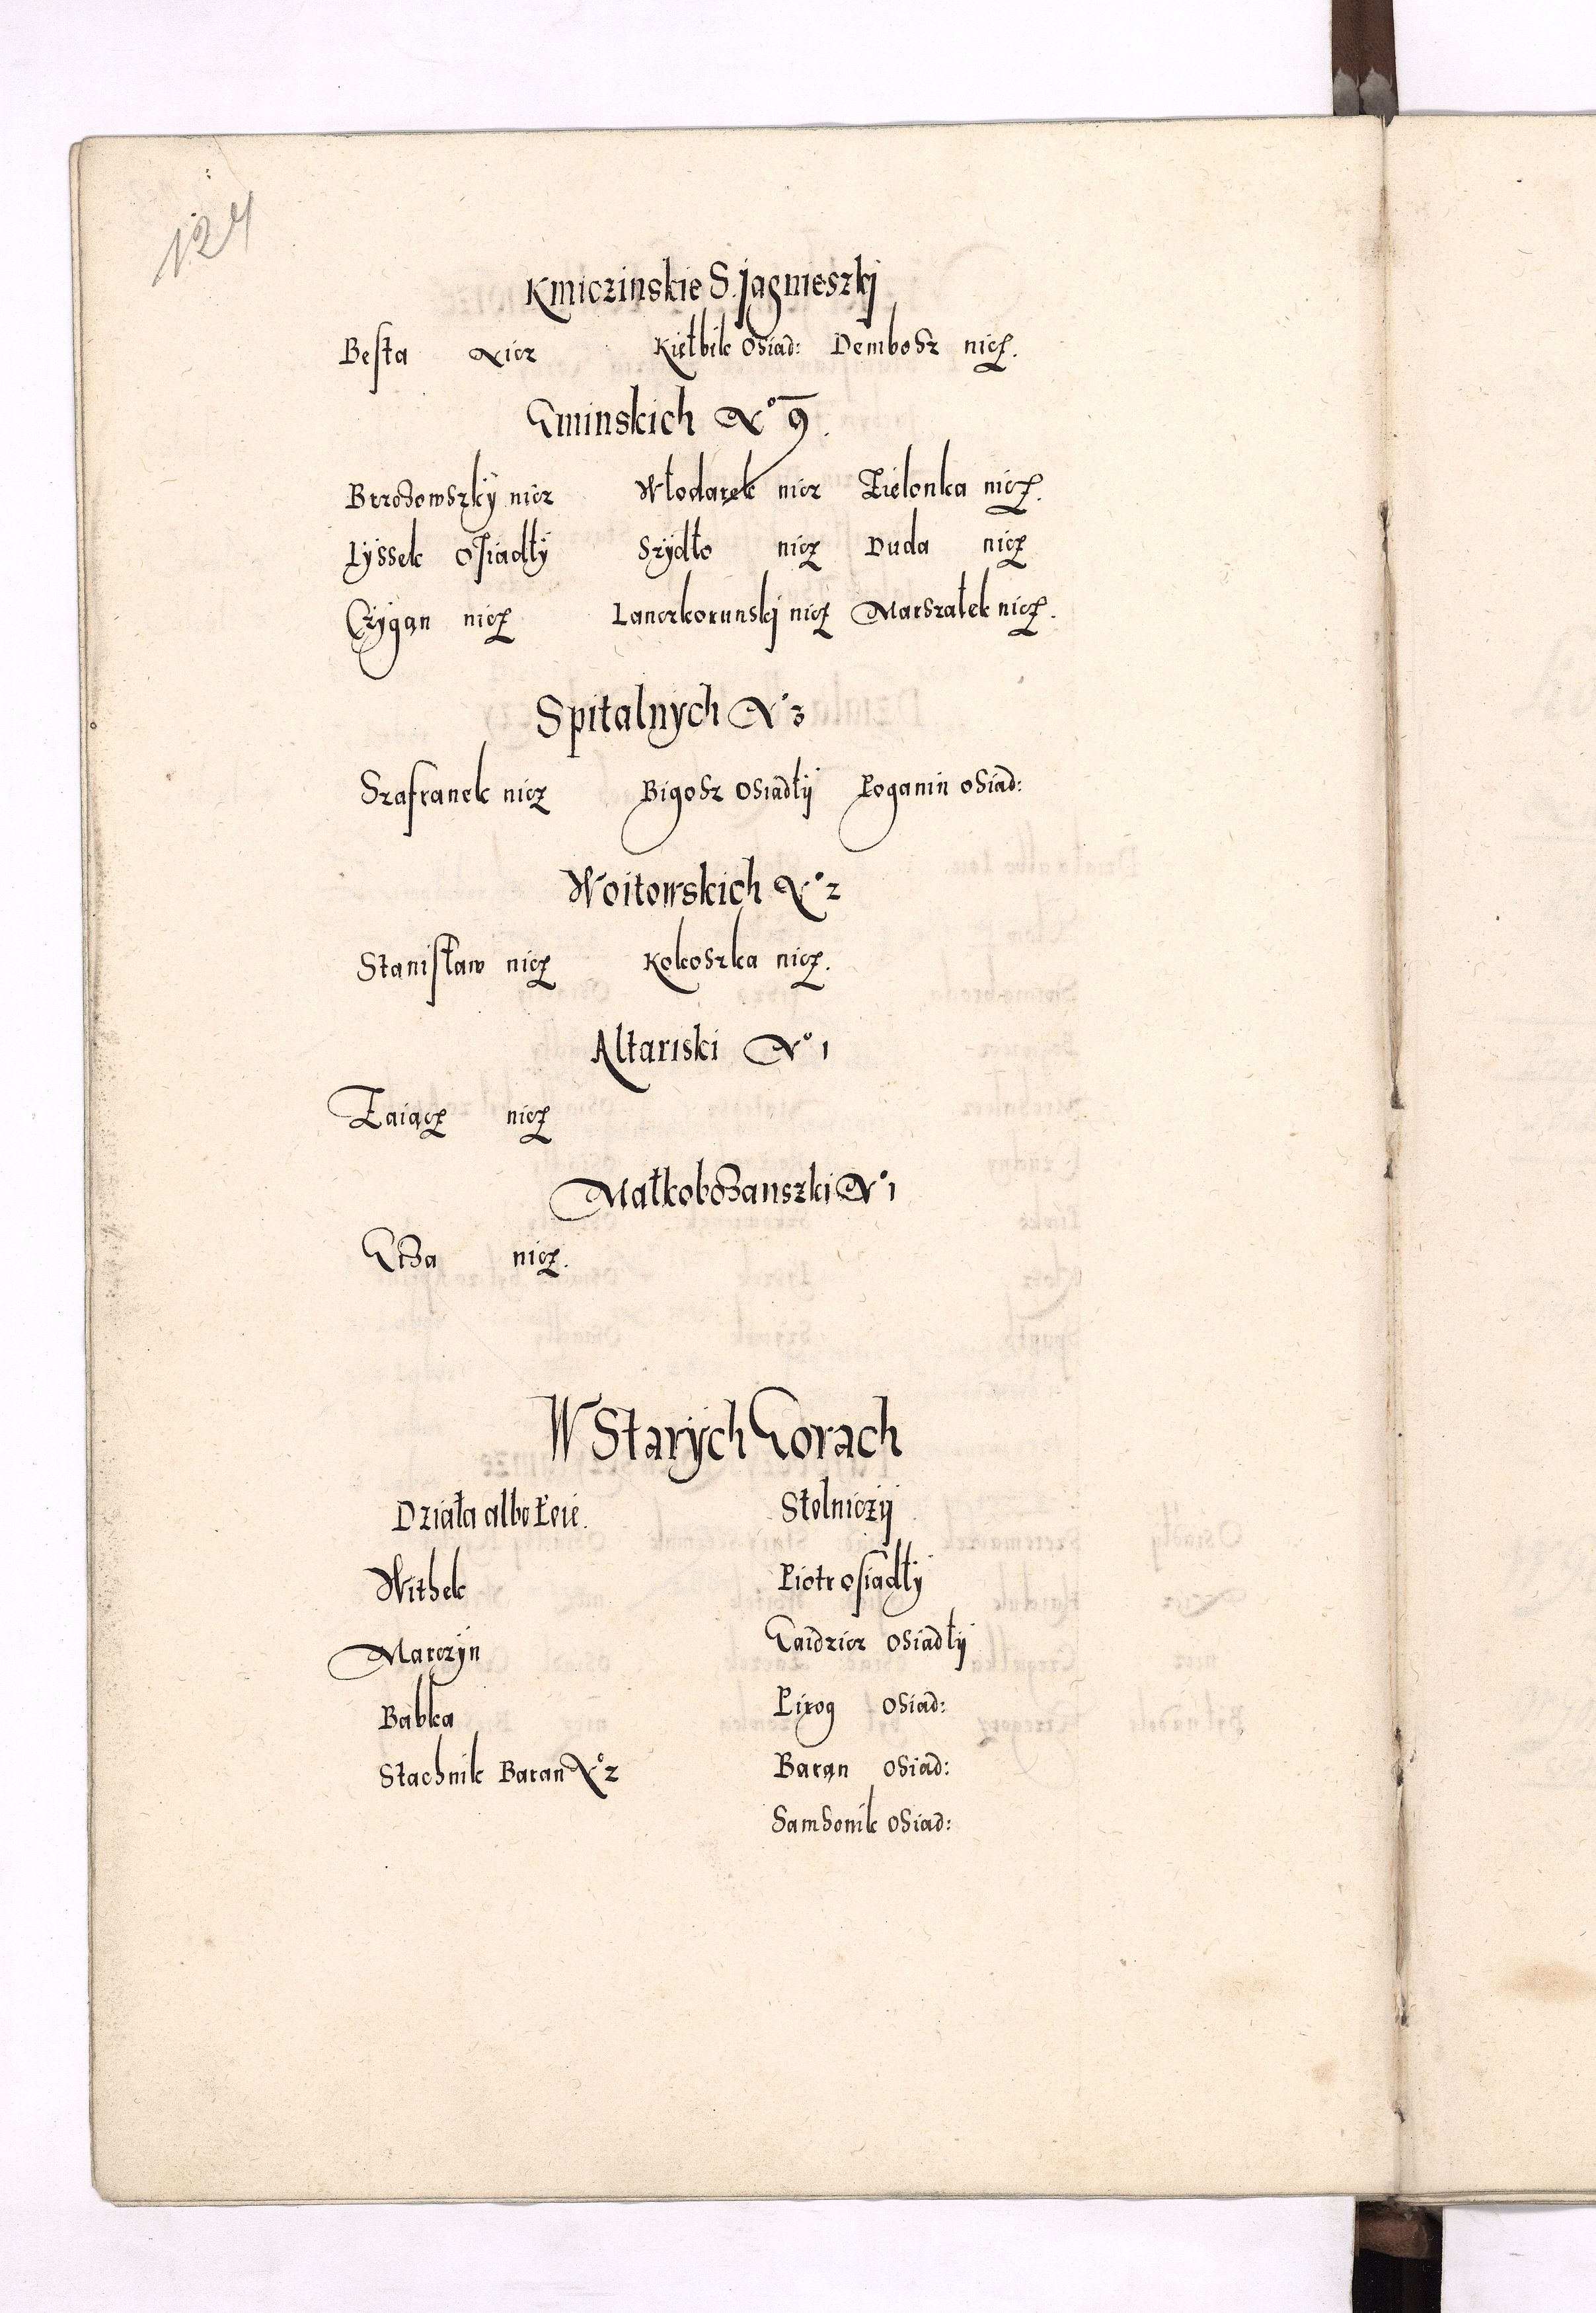 124
Kmiczinskie S. jagnieszkj
Besta Nicz Kiełbik Osiad: Dembosz nicz.
Gminskich No 9.
Brzozowszky nicz Włodarek nicz Zielonka nicz.
Lyssek Osiadły Szydło nicz Duda nicz
Czygan nicz Lanczkorunskj nicz Marszałek nicz.
Spitalnych No 3
Szafranek nicz Bigosz Osiadły Poganin osiad:
Woitowskich No 2
Stanisław nicz Kokoszka nicz.
Altariski No 1
Zaiącz nicz
Małkobozanszki No 1
Gwza nicz.
W Starych Gorach
Działa albo Łoie. Stolniczy
Withek Piotr osiadły
Marczyn Gaidzicz osiadły
Babka Pirog Osiad:
Stachnik Baran No 2 Baran Osiad:
Samsonik Osiad: